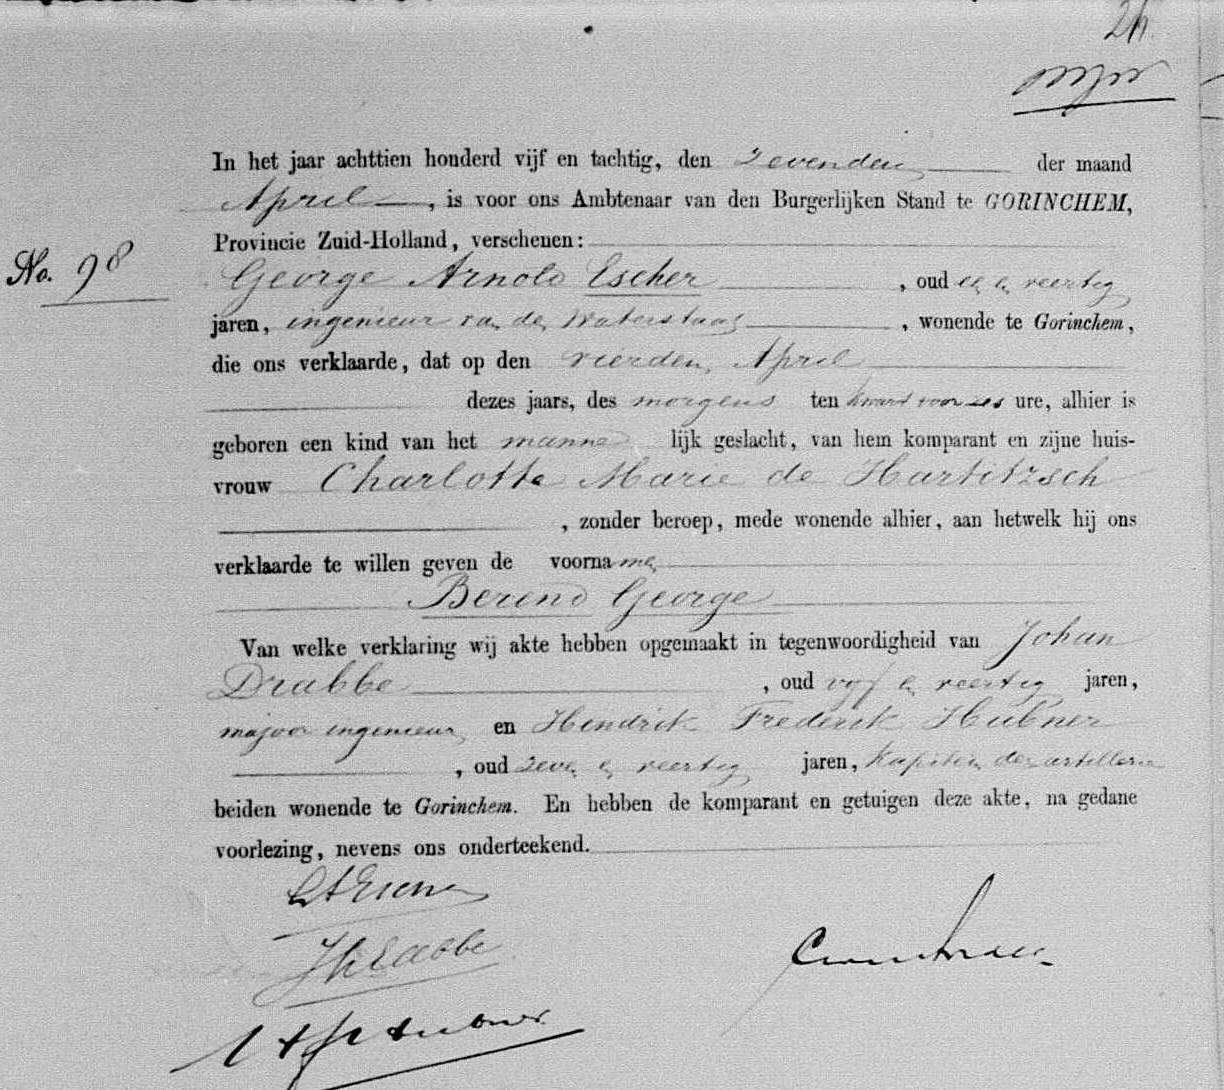 In het jaar achttien honderd vijf en tachtig, den zevenden der maand
April, is voor ons Ambtenaar van den Burgerlijken Stand te GORINCHEM,
Provincie Zuid-Holland, verschenen:
No. 98
George Arnold Escher, oud een en veertig
jaren, ingenieur van den Waterstaat, wonende te Gorinchem,
die ons verklaarde, dat op den vierden April
dezes jaars, des morgens ten kwart voor zes ure, alhier is
geboren een kind van het manne lijk geslacht, van hem komparant en zijne huis-
vrouw Charlotte Marie de Hartitzsch
, zonder beroep, mede wonende alhier, aan hetwelk hij ons
verklaarde te willen geven de voorna men
Berend George
Van welke verklaring wij akte hebben opgemaakt in tegenwoordigheid van Johan
Drabbe, oud vijf en veertig jaren,
majoor ingenieur en Hendrik Frederik Hubner
, oud zeven en veertig jaren, kapitein der artillerie
beiden wonende te Gorinchem. En hebben de komparant en getuigen deze akte, na gedane
voorlezing, nevens ons onderteekend.
GAEscher
JDrabbe
HFHubner